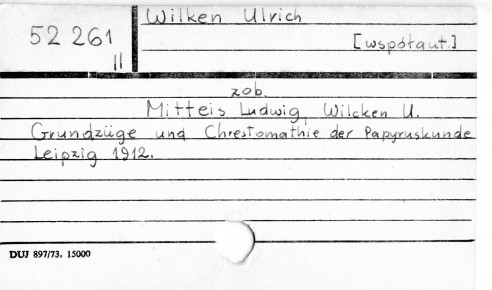 Wilken Ulrich
52 261
II
[współaut.]
zob.
Mitteis Ludwig, Wilcken U.
Grundzüge und Chrestomathie der Papyruskunde
Leipzig 1912.
DUJ 897/73. 15000